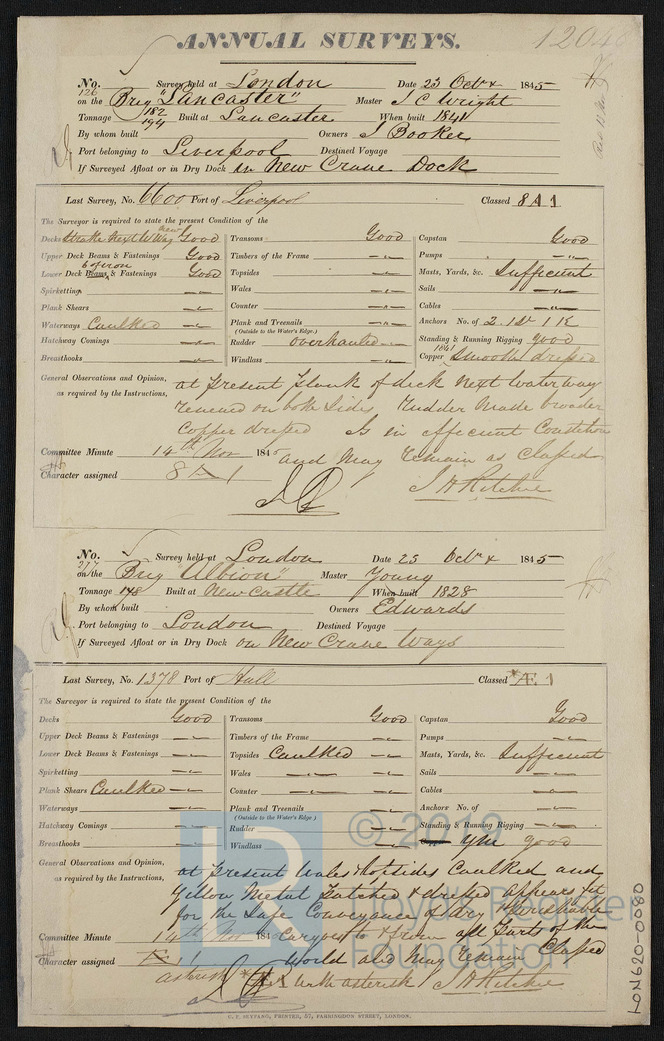 ANNUAL SURVEYS.
No. 126 Survey held at London Date 23 Octr 1845
on the Brig "Lancaster" Master J C Wright
Tonnage 182 194 Built at Lancaster When built 1841
By whom built Owners J Booker
Port belonging to Liverpool Destined Voyage
If Surveyed Afloat or in Dry Dock in New Crane Dock
Last Survey, No. 6600 Port of Liverpool Classed 8 A 1
The Surveyor is required to state the present Condition of the
Decks Strake next W Way new Good
Upper Deck Beams & Fastenings Good
Lower Deck Beams & Fastenings Good
Spirketting
Plank Shears
Waterways Caulked
Hatchway Comings
Breasthooks
Transoms Good
Timbers of the Frame
Topsides
Wales
Counter
Plank and Treenails
(Outside to the Water's Edge.)
Rudder overhauled
Windlass
Capstan Good
Pumps
Masts, Yards, &c. Sufficient
Sails
Cables
Anchors No. of 2. 1 St 1 K
Standing & Running Rigging good
Copper 1841 Smooth dressed
General Observations and Opinion, as required by the Instructions,
at present plank of deck next waterway
renewed on both sides Rudder made broader
Copper dressed Is in efficient Condition
and may remain as Classed
Committee Minute 14th Nov 184
Character assigned 8 A 1
J H Ritchie
No. 217 Survey held at London Date 23 Octr 1845
on the Brig Albion" Master Young
Tonnage 148 Built at Newcastle When built 1828
By whom built Owners Edwards
Port belonging to London Destined Voyage
If Surveyed Afloat or in Dry Dock on New Crane Ways
Last Survey, No. 1378 Port of Hull Classed *Æ 1
The Surveyor is required to state the present Condition of the
Decks Good
Upper Deck Beams & Fastenings
Lower Deck Beams & Fastenings
Spirketting
Plank Shears Caulked
Waterways
Hatchway Comings
Breasthooks
Transoms Good
Timbers of the Frame
Topsides Caulked
Wales
Counter
Plank and Treenails
(Outside to the Water's Edge.)
Rudder
Windlass
Capstan Good
Pumps
Masts, Yards, &c. Sufficient
Sails
Cables
Anchors No. of
Standing & Running Rigging
YM good
General Observations and Opinion, as required by the Instructions,
at present Wales & topsides Caulked and
Yellow Metal patched & dressed appears fit
for the Safe Conveyance of Dry & perishable
Cargoes to & from all Parts of the
World and may remain Classed
Æ with asterisk J H Ritchie
Committee Minute 14th Nov 184
Character assigned Æ 1
asterisk
C. F. SEYFANG, PRINTER, 57, FARRINGDON STREET, LONDON.
LON620-0080
© 2019
Lloyd's Register
Foundation
LR